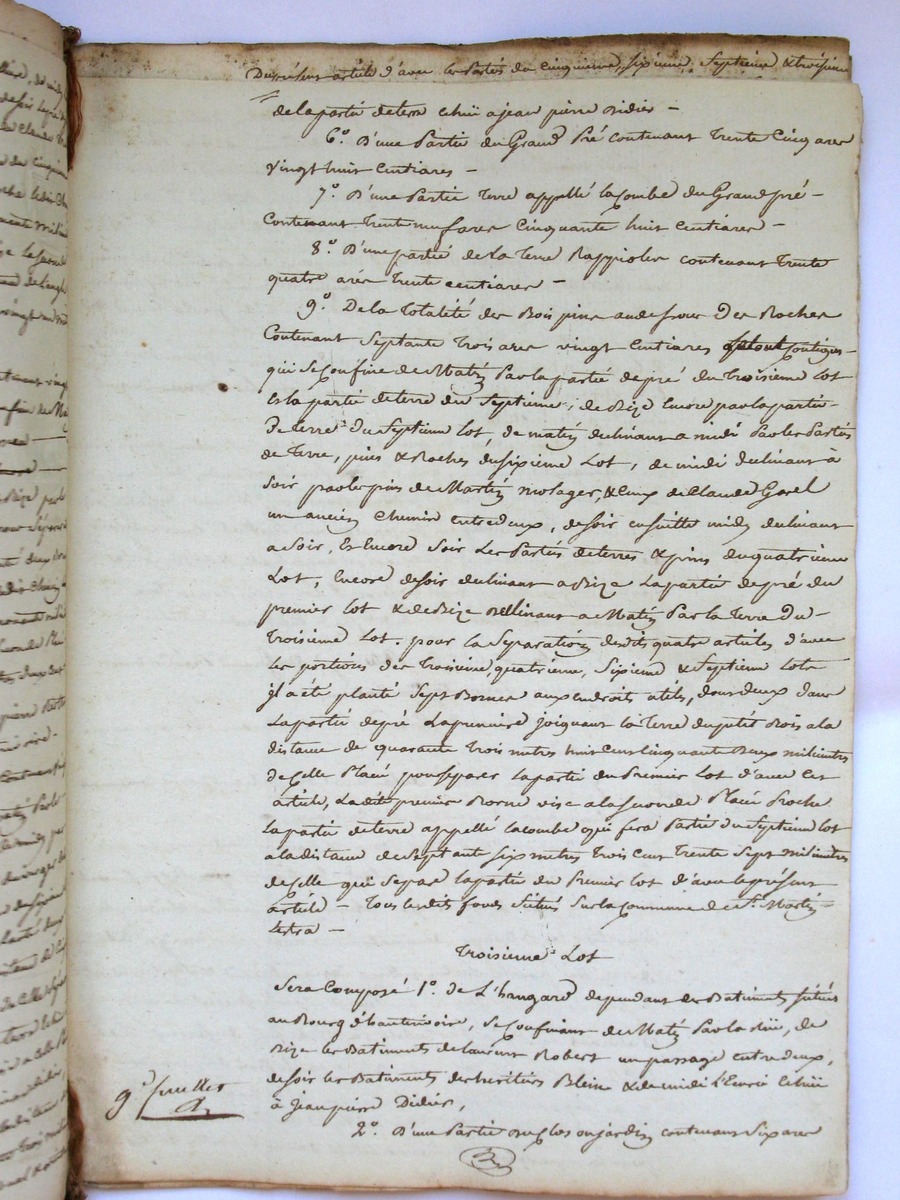 Du présent article d'avec les Partés du cinquieme, sixieme, Septieme & troisieme
de la partié de terre echüe a jean pierre Didier —
6.º D'une Partie du Grand Pré contenant Trente Cinq ares
vingt huit Centiares —
7.º D'une Partie Terre appellé la Combe du Grand pré —
Contenant Trente neuf ares Cinquante huit Centiares —
8.º D'une partié de la Terre Rappioles contenant Trente
quatre ares Trente Centiares —
9.º De la Totalité des Bois pins au dessous Des Roches
Contenant Septante Trois ares vingt Centiares le tout contigus —
qui se Confine de Matin Par la partié de pré du Troisieme Lot
et la partié de terre du Septieme, de Bize Encore par la partié
De terre du Septieme Lot, de matin declinant a midi Par les Partés
de Terre, pins & Roches du sixieme Lot, de midi declinant à
Soir par les pins de Martin molager, & Ceux de Claude Gorel
un ancien Chemin entre deux, de soir ensuitte midy declinant
a Soir, Et Encore Soir Les Partés de terres & pins du quatrieme
Lot, Encore de soir declinant a Bize La partié de pré du
premier Lot & de Bize Declinant a Matin Par la Terre Du
Troisieme Lot. pour la Separation desdits quatre articles d'avec
Les portions des Troisieme, quatrieme, Sixieme & Septieme Lots
il a été planté Sept Bornes aux endroits utils, dont deux dans
La partié de pré La premiere joignant la Terre du petit Bois a la
distance de quarante Trois metres huit Cent Cinquante Deux milimetres
de Celle Placée pour separer la partié du Premier Lot d'avec Cet
article, Ladite premiere Borne vise a la seconde Placée Proche
La partié de terre appellé la combe qui fera Partié du Septieme Lot
a la distance de Septante Six metres Trois Cent Trente Sept milimetres
de Celle qui Separe la partié du Premier Lot d'avec le présent
article — Tous lesdits fonds Situés Sur la Commune de St. Martin
Lestra —
Troisieme Lot
Sera Composé 1.º de L'hangard dependant des Batiments Situés
au Bourg d'hauterivoire, se Confinant de Matin Par la Rüe, de
Bize les Batiments de Laurent Robert un passage entre deux,
de soir les Batiments des heritiers Blein & de midi L'Ecurie Echüe
à Jean pierre Didier,
2.º D'une Partie du Clos ou jardin contenant Six ares
9.e feuillet